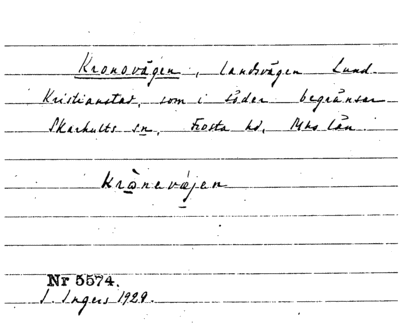 Kronovägen, landsvägen Lund-
Kristianstad, som i söder begränsar
Skarhults sn, Frosta hd, Mhs län.
krònevæjen
Nr 5574.
I. Ingers 1929.